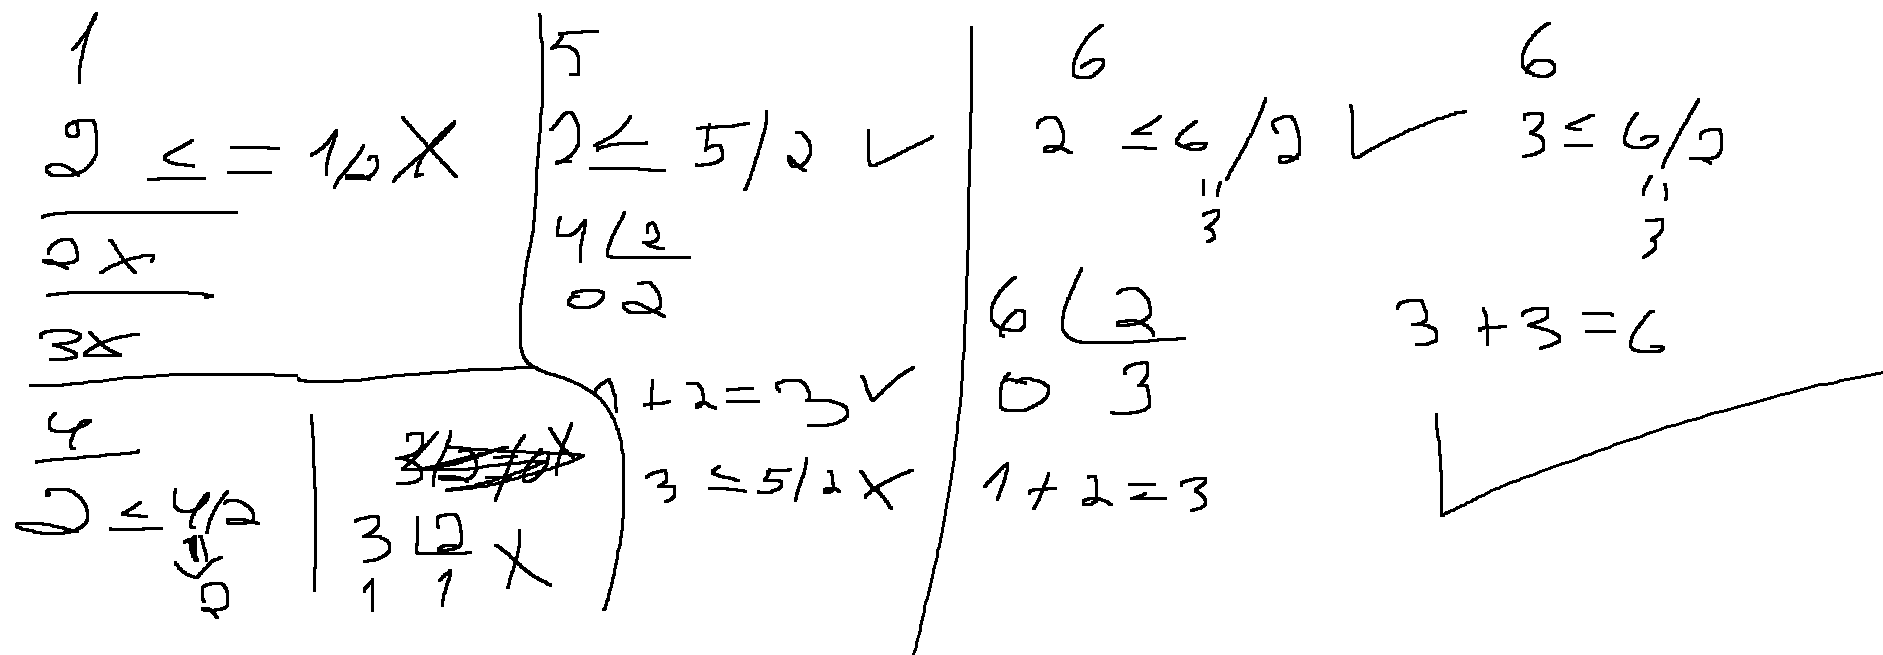 1
2 ≤ = 1/2 X
2 X
3 X
4
2 ≤ 4/2
2
3 2 X
1 1
5
2 ≤ 5/2 ✓
4 2
0 2
1 + 2 = 3 ✓
3 ≤ 5/2 X
6
2 ≤ 6/2 ✓
"
3
6 2
0 3
1 + 2 = 3
6
3 ≤ 6/2
"
3
3 + 3 = 6
✓